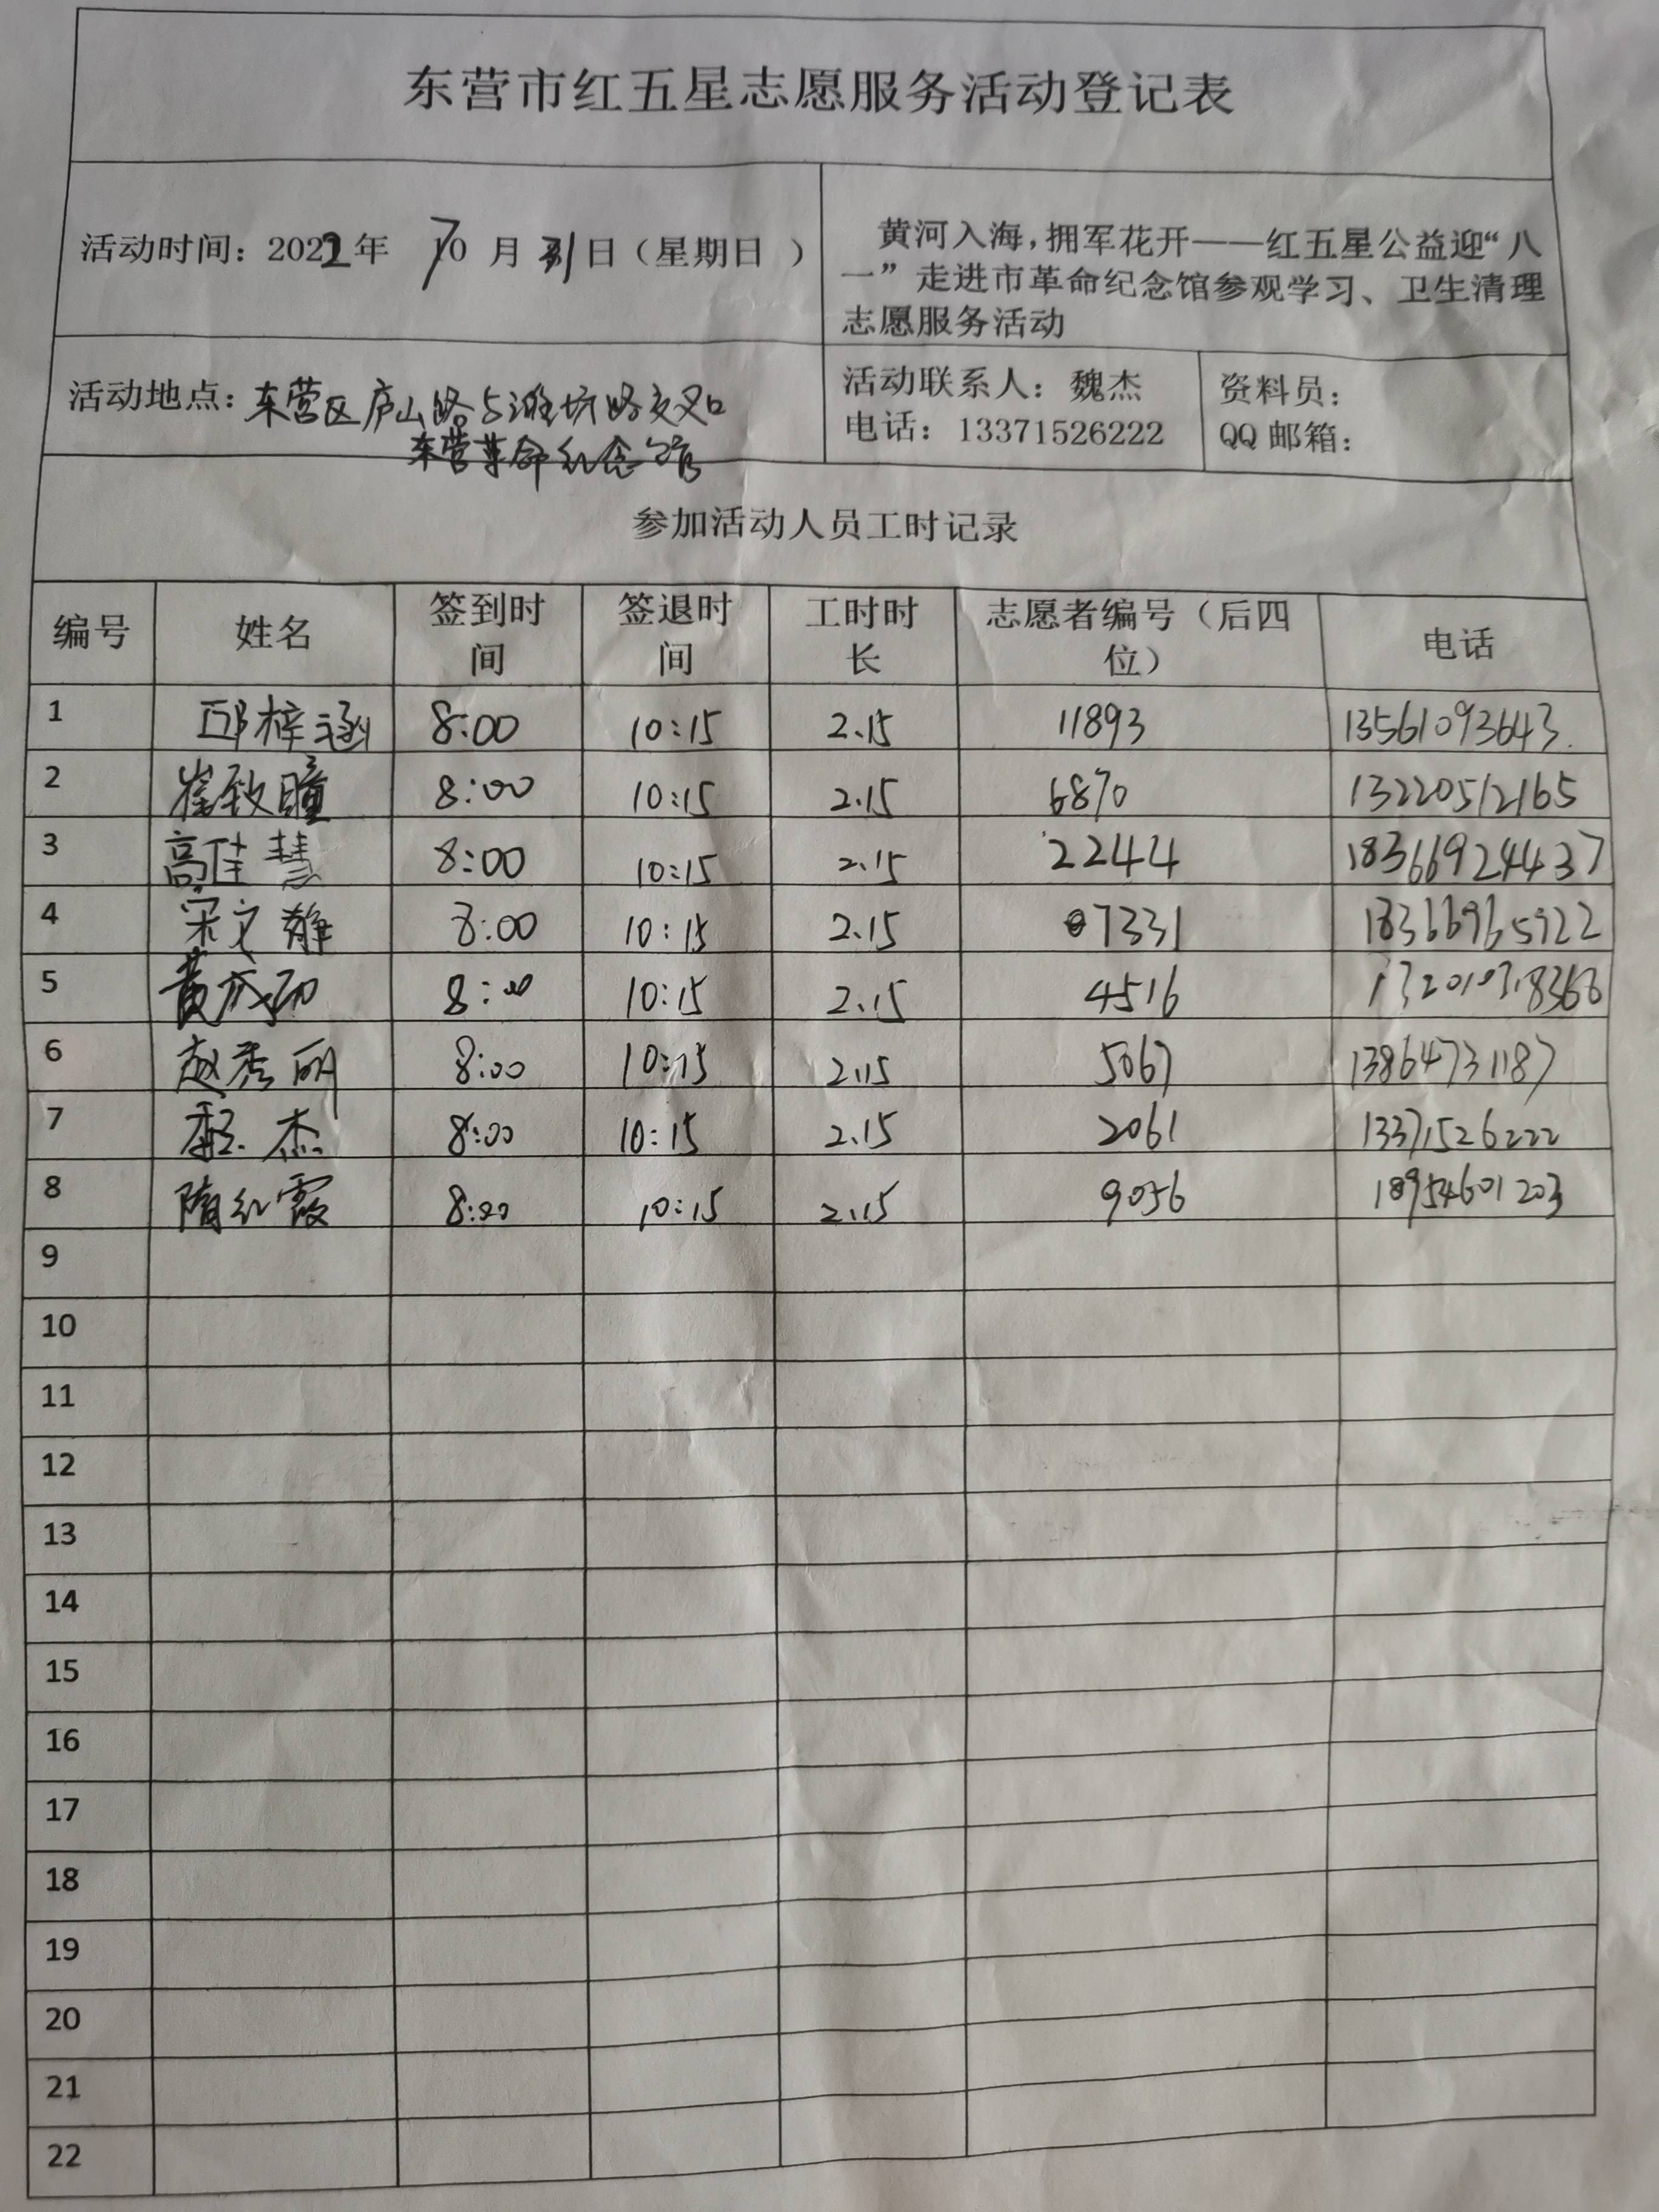 东营市红五星志愿服务活动登记表
活动时间：2022年 7月31日（星期日 ）
黄河入海，拥军花开——红五星公益迎“八
一”走进市革命纪念馆参观学习、卫生清理
志愿服务活动
活动地点：东营区庐山路与潍坊路交叉口
东营革命纪念馆
活动联系人：魏杰
电话：13371526222
资料员：
QQ 邮箱：
参加活动人员工时记录
编号 姓名 签到时间 签退时间 工时时长 志愿者编号（后四位） 电话
1 邱梓涵 8:00 10:15 2.15 11893 13561093643
2 崔致瞳 8:00 10:15 2.15 6870 13220512165
3 高佳慧 8:00 10:15 2.15 22444 18366924437
4 宋文静 8:00 10:15 2.15 7331 18366965922
5 黄成功 8:00 10:15 2.15 4516
6 赵秀丽 8:00 10:15 2.15 5067 13864731187
7 魏杰 8:00 10:15 2.15 2061 13371526222
8 隋红霞 8:00 10:15 2.15 9056 18954601203
9
10
11
12
13
14
15
16
17
18
19
20
21
22